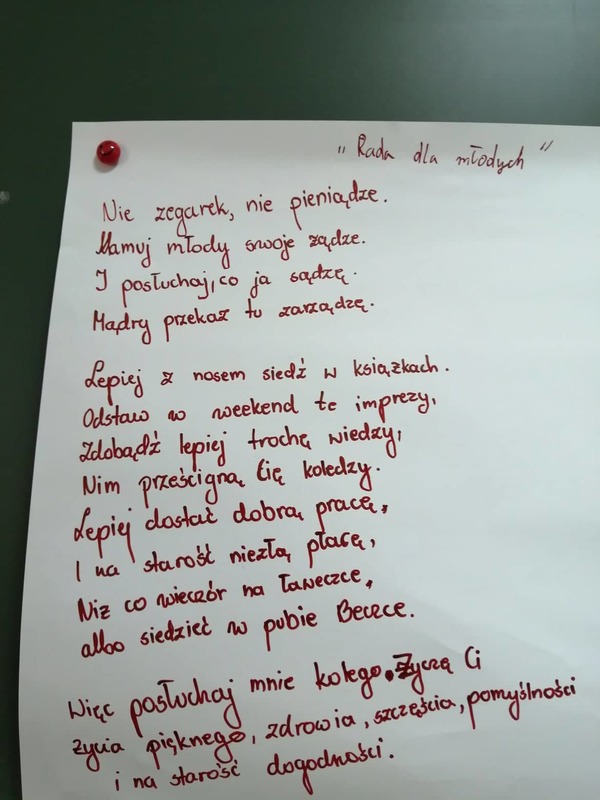 „Rada dla młodych”
Nie zegarek, nie pieniądze.
Hamuj młody swoje żądze.
I posłuchaj, co ja sądzę.
Mądry przekaz tu zarządzę.
Lepiej z nosem siedź w książkach.
Odstaw w weekend te imprezy,
Zdobądź lepiej trochę wiedzy,
Nim prześcigną Cię koledzy.
Lepiej dostać dobrą pracę,
I na starość niezłą płacę,
Niż co wieczór na ławeczce,
albo siedzieć w pubie Beczce.
Więc posłuchaj mnie kolego. Życzę Ci
życia pięknego, zdrowia, szczęścia, pomyślności
i na starość dogodności.